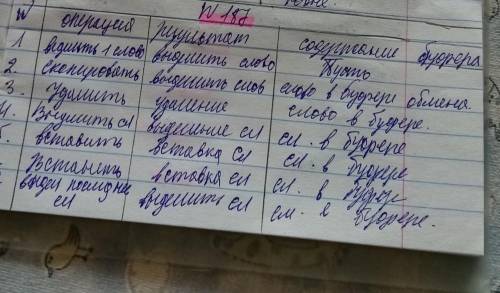 № 187
№ операция результат содержание буфера
1 выделить 1 слово выделить слово Пусто
2. Скопировать выделить слов слово в буфере обмена
3. Удалить удаление слово в буфере.
4. Выделить сл выделение сл сл. в буфере
вставить вставка сл сл. в буфере
Вставить вставка сл сл. в буфере
выдел последнее выделить сл сл. в буфере.
сл